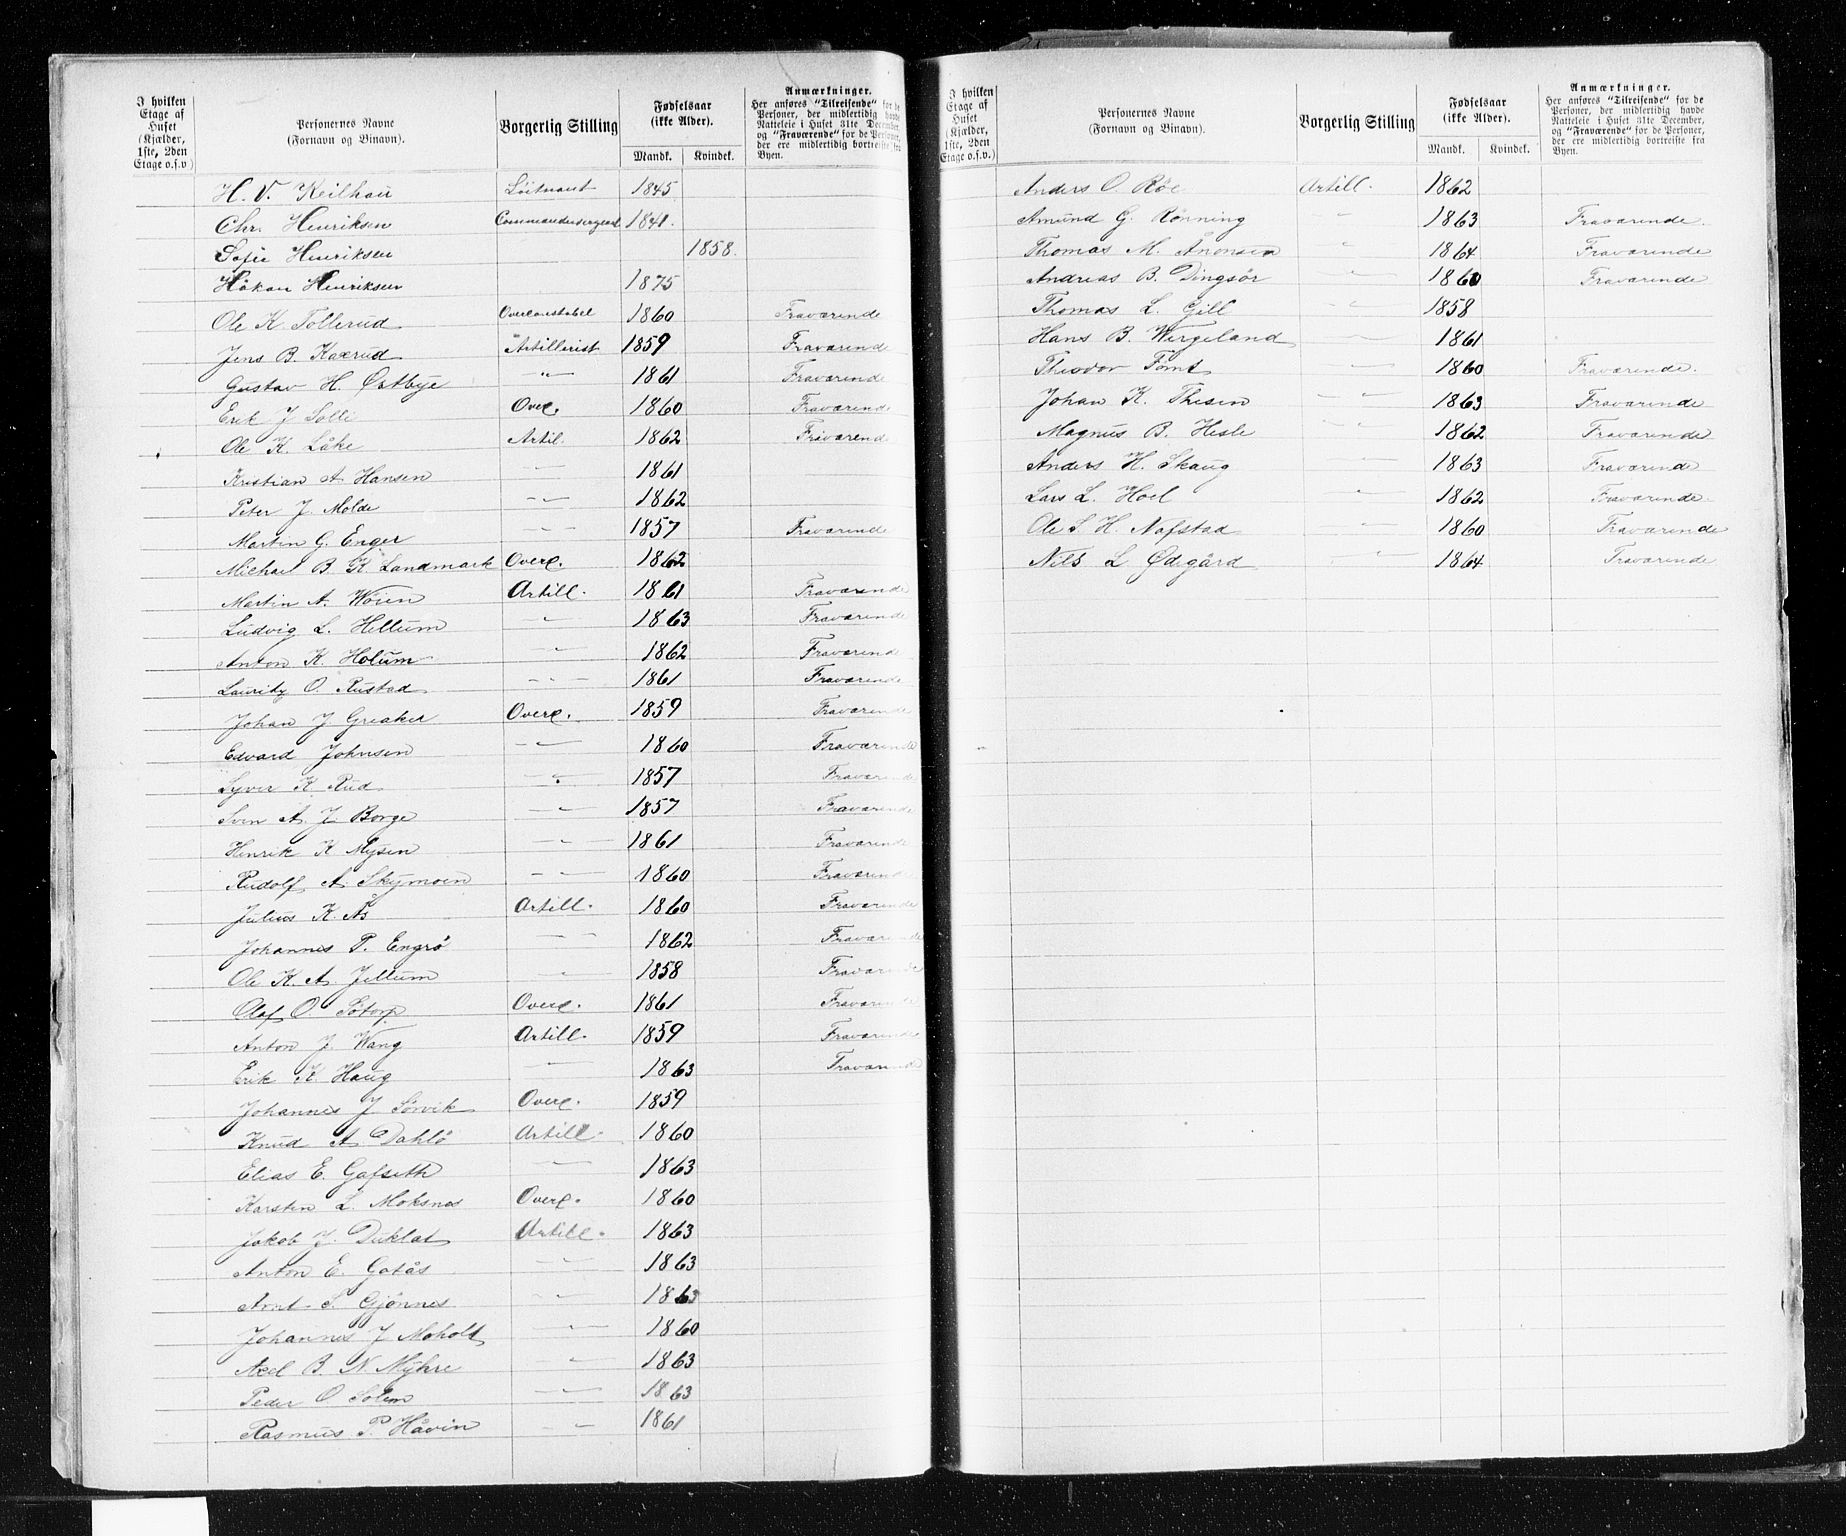 I hvilken Etage af Huset (Kjælder, 1ste, 2den Etage o.s.v.) Personernes Navne (Fornavn og Binavn). Borgerlig Stilling Fødselsaar (ikke Alder). Mandk. Kvindek. Anmærkninger. Her anføres "Tilreisende" for de Personer, der midlertidig havde Natteleie i Huset 31te December, og "Fraværende" for de Personer, der ere midlertidig bortreiste fra Byen.
H. V. Keilhau Löitnant 1845
Chr. Henriksen Commandersergeant 1841.
Sofie Henriksen 1858.
Håkon Henriksen 1875
Ole K Tollerud Overconstabel 1860 Fraværende
Jens B. Kaxrud Artillerist 1859 Fraværende
Gustav H. Østbye -"- 1861 Fraværende
Erik J Solli Overc. 1860 Fraværende
Ole K. Låke Artil. 1862 Fraværend
Kristian A Hansen -"- 1861
Peter J Molde -"- 1862
Martin G. Enger -"- 1857 Fraværende
Michael B. K. Landmark Overc. 1862
Martin A. Woien Artill. 1861 Fraværende
Ludvig L. Hellum " 1863 Fraværende
Anton K. Holum -"- 1862 Fraværende
Lauritz O. Rustad -"- 1861 Fraværende
Johan J Greaker Overc. 1859 Fraværende
Edvard Johnsen -"- 1860 Fraværende
Syver K. Rud -"- 1857 Fraværende
Sven A. J. Borge -"- 1857 Fraværende
Henrik K Mysen -"- 1861 Fraværende
Rudolf A. Skymoen -"- 1860 Fraværende
Julius K. Ås Artill. 1860 Fraværende
Johannes P. Engrö -"- 1862 Fraværende
Ole K. A. Jellum -"- 1858 Fraværende
Olaf O. Sötorp Overc. 1861 Fraværende
Anton J. Wang Artill. 1859 Fraværende
Erik K Haug -"- 1863 Fraværende
Johannes J Sorvik Overc. 1859
Knud A. Dahlö Artill. 1860
Elias E. Gafseth -"- 1863
Karsten L. Moksnes Overc. 1860
Jakob J. Duklat Artill. 1863
Anton E. Gatås -"- 1863
Arnt S. Gjönnes -"- 1863
Johannes J Moholt -"- 1860
Axel B. N. Myhre " 1863
Peder O Solem -"- 1863
Rasmus P. Håvin " 1861
I hvilken Etage af Huset (Kjælder, 1ste, 2den Etage o.s.v.) Personernes Navne (Fornavn og Binavn). Borgerlig Stilling Fødselsaar (ikke Alder). Mandk. Kvindek. Anmærkninger. Her anføres "Tilreisende" for de Personer, der midlertidig havde Natteleie i Huset 31te December, og "Fraværende" for de Personer, der ere midlertidig bortreiste fra Byen.
Anders O. Röe Artill. 1862
Amund G. Rönning " 1863 Fraværende.
Thomas M. Ånonsen " 1864 Fraværende
Andreas B. Dingsör -"- 1860 Fraværende
Thomas L. Gill -"- 1858
Hans B. Wergeland -"- 1861
Theodor Tomt -"- 1860 Fraværende.
Johan K. Thesen -"- 1863 Fraværende
Magnus B. Hesle -"- 1862 Fraværende
Anders H. Skaug -"- 1863 Fraværende
Lars L. Hoel -"- 1862 Fraværende.
Ole S. H. Nafstad -"- 1860 Fraværende
Nils L Ødegård -"- 1864 Fraværende